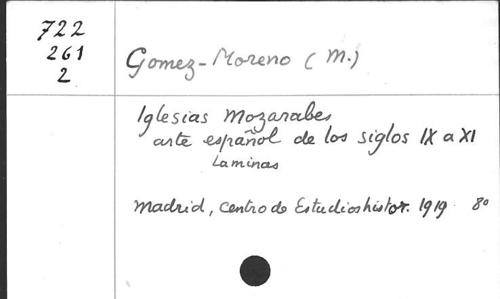 722
261
2
Gomez-Moreno (M.)
Iglesias Mozarabes
arte español de los siglos IX a XI
Laminas
Madrid, Centro de Estudios histor. 1919 8º